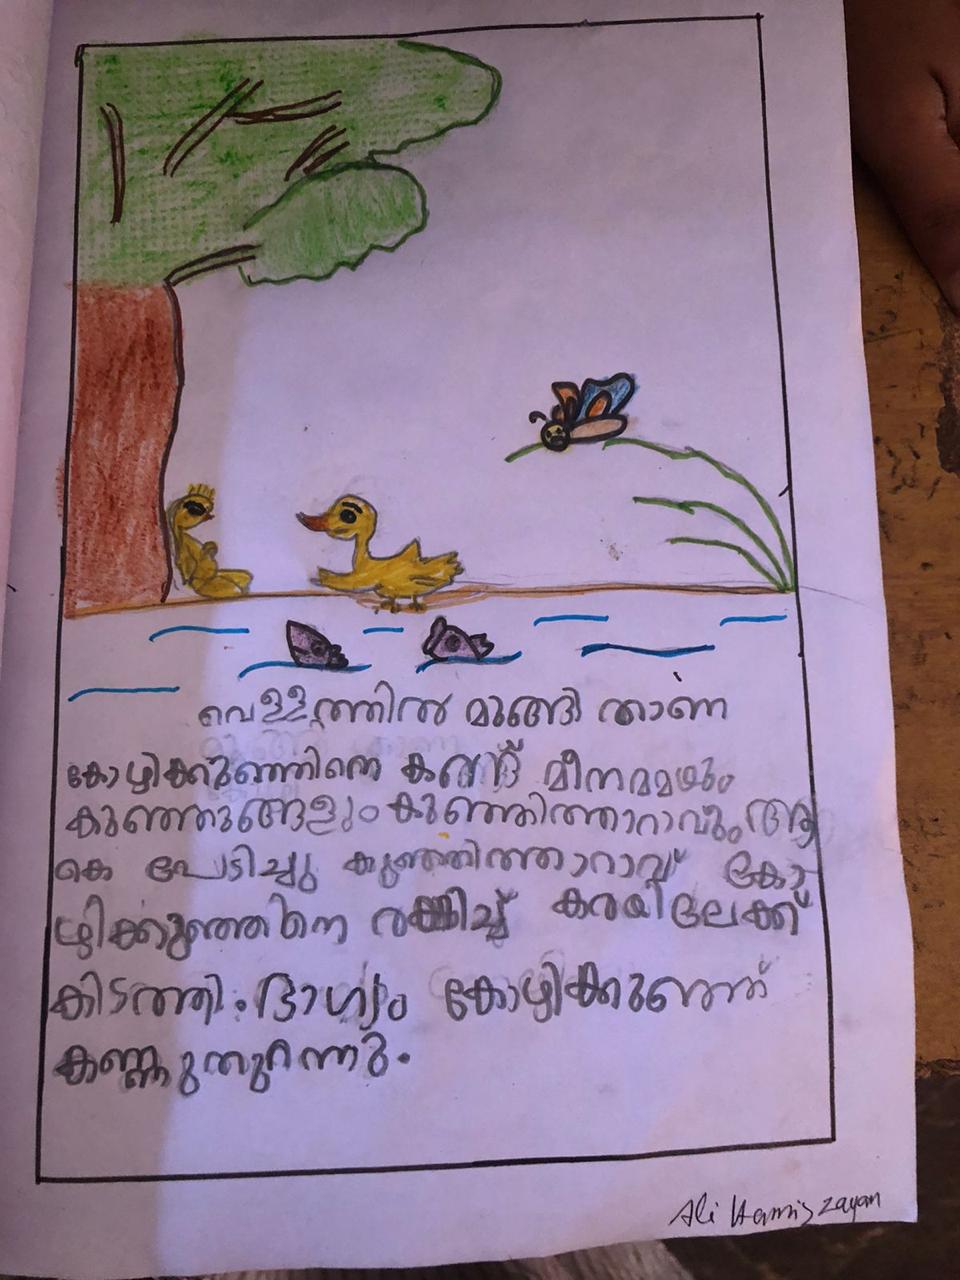 വെള്ളത്തിൽ മുങ്ങി താണ
കോഴിക്കുഞ്ഞിനെ കണ്ട് മീനമ്മയും
കുഞ്ഞുങ്ങളും കുഞ്ഞിത്താറാവും ആ
കെ പേടിച്ചു കുഞ്ഞിത്താറാവ് കോ
ഴിക്കുഞ്ഞിനെ രക്ഷിച്ച് കരയിലേക്ക്
കിടത്തി. ഭാഗ്യം കോഴിക്കുഞ്ഞ്
കണ്ണുതുറന്നു.
Ali Hamiz zayan